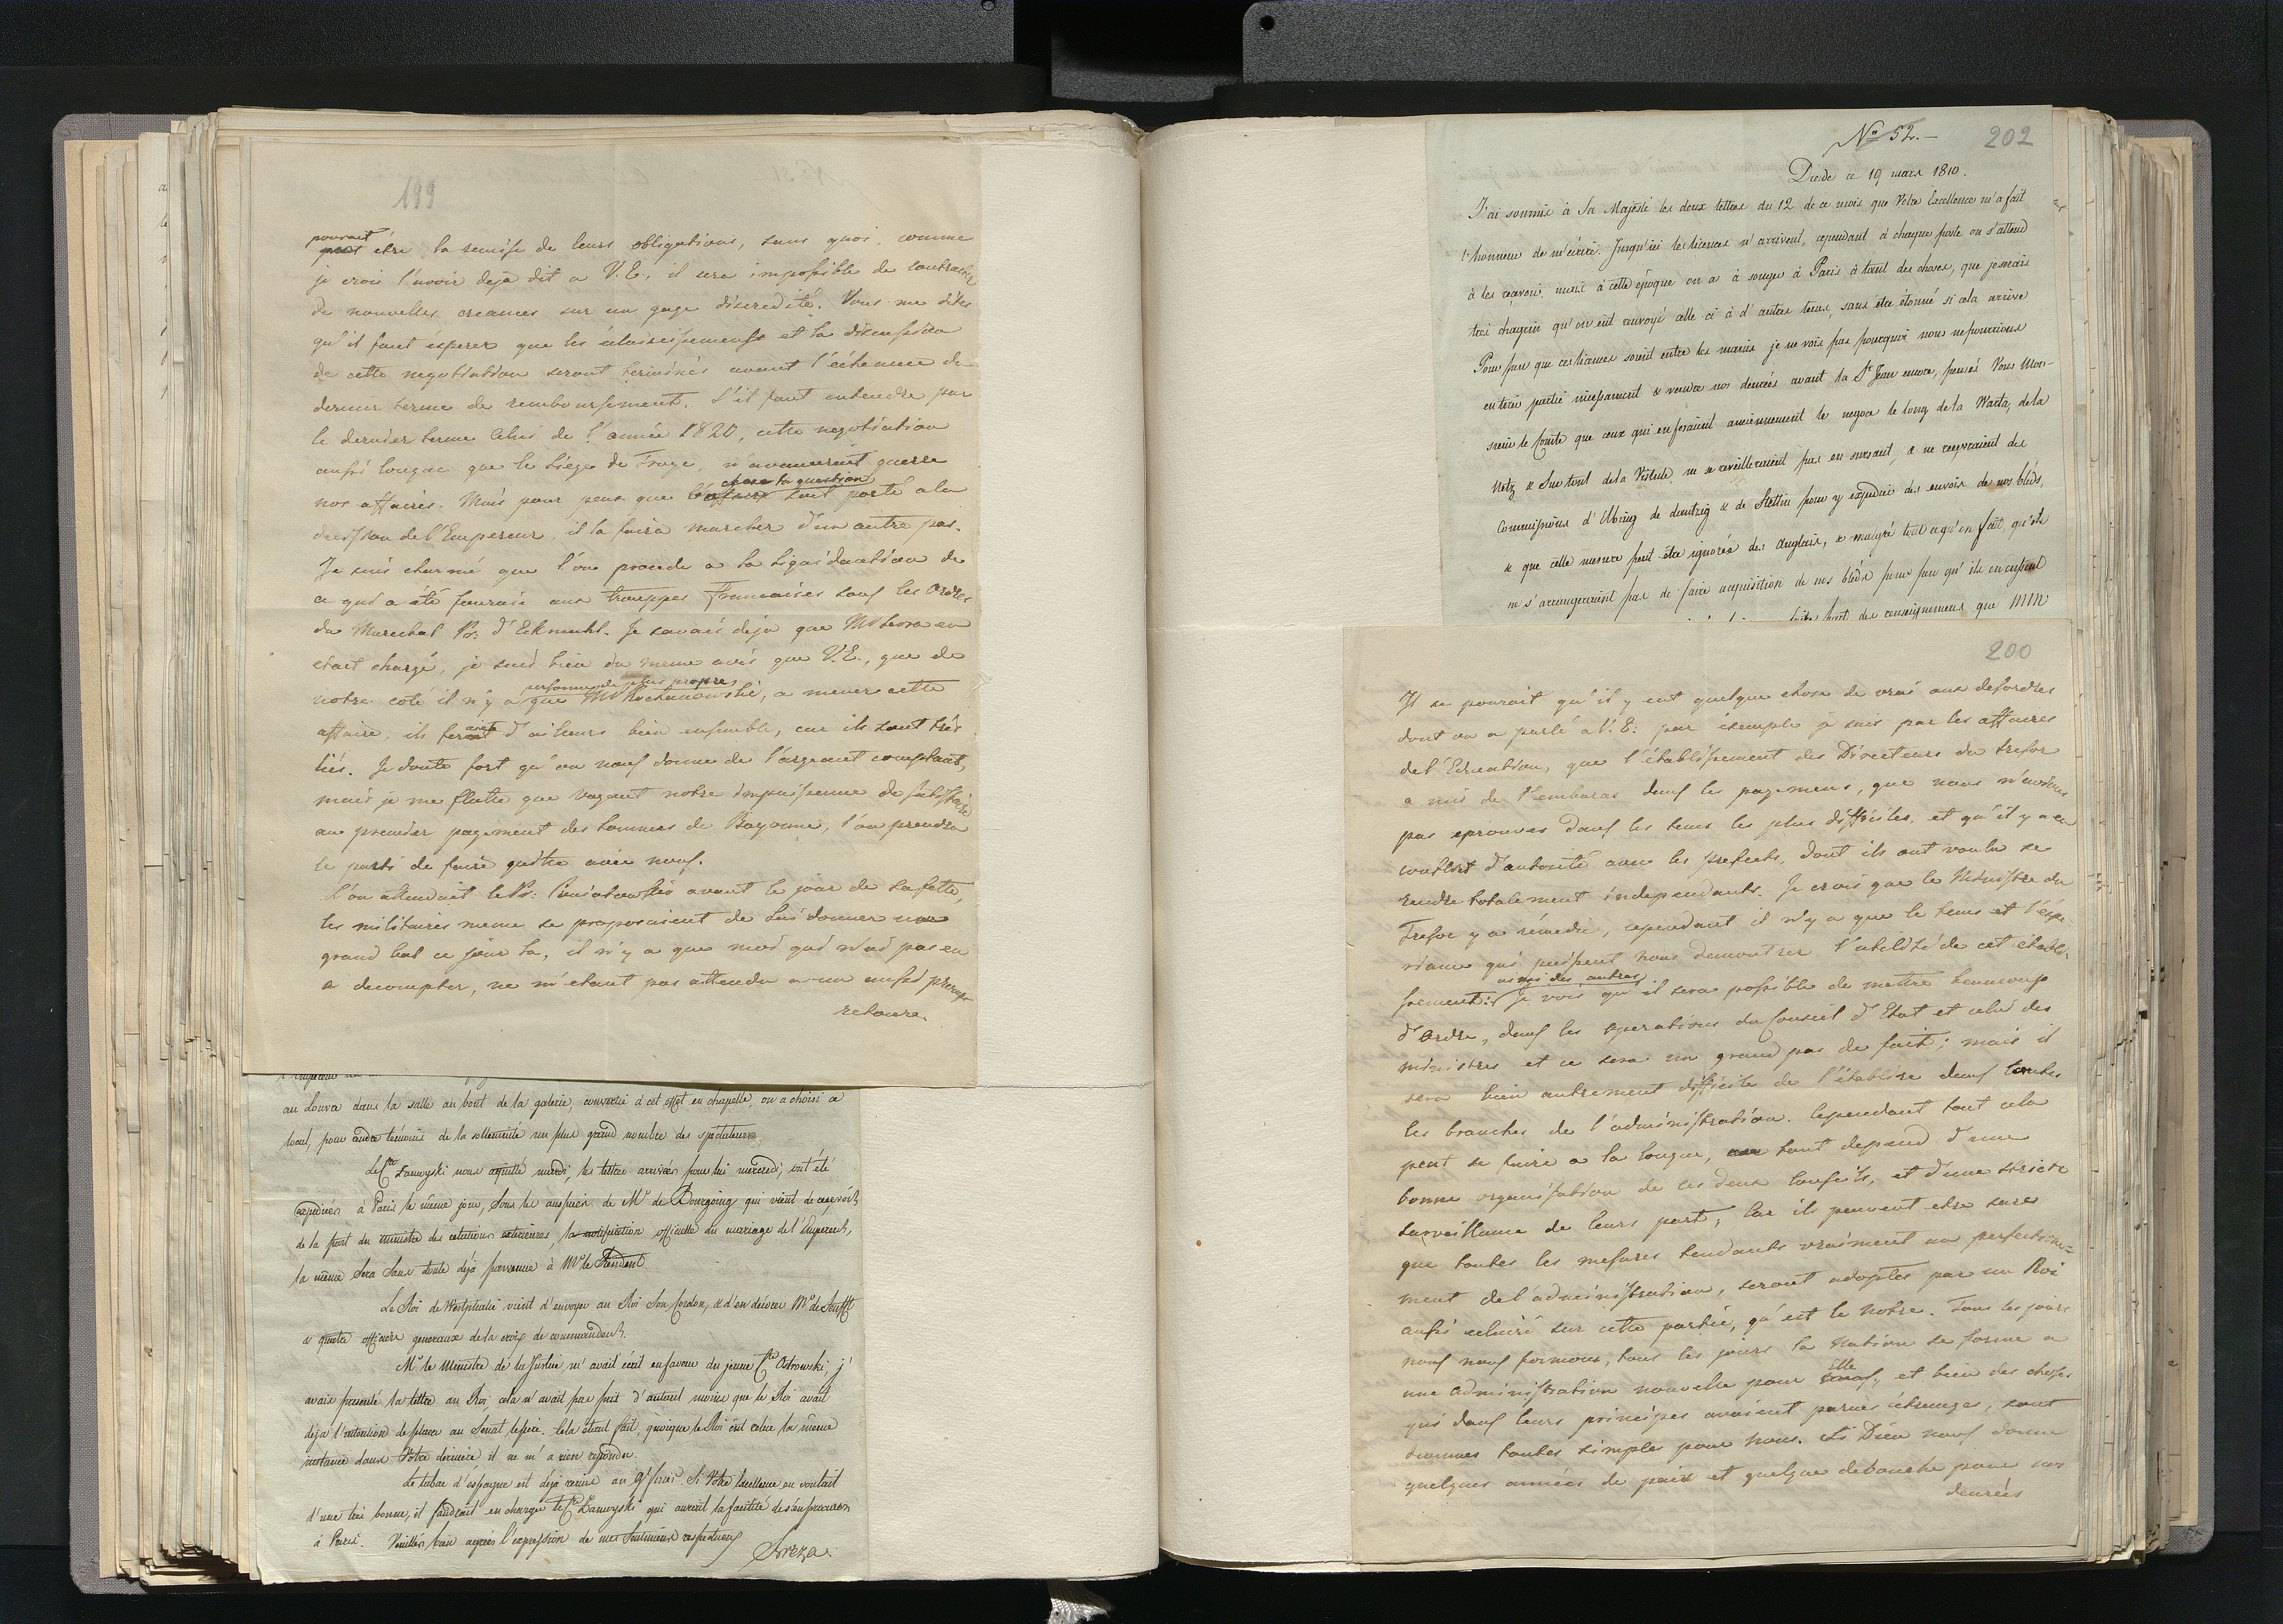 199
pourrait
peut etre la remise de leurs obligations, sans quoi, comme
je crois l'avoir deja dit a V. E., il sera impossible de contracter
de nouvelles creances sur un gage discredité. Vous me dites
qu'il faut ésperer que les éclaircissements et la discussion
de cette negotiation seront terminés avant l'échéance du
dernier terme de remboursement. S'il faut entendre par
le dernier terme celui de l'année 1820, cette negotiation
aussi longue que le siege de Troye, n'avanceroit guerre
chose la question
nos affaires. Mais pour peu que l'affaire soit porté a la
decission de l'Empereur, il la faira marcher d'un autre pas.
Je suis charmé que l'on procede a la liquidation de
ce qui a été fourni aux trouppes Francaises sous les Ordres
du Marechal Pr: d'Ekmuhl. Je savais deja que Mr
etait chargé, je suis bien du meme avis que V. E., que de
personne de plus propre
notre coté il n'y a que Mr Kochanowski, a mener cette
affaire, ils feroient d'ailleurs bien ensemble, car ils sont trés
liés. Je doute fort qu'on nous donne de l'argeant comptant,
mais je me flatte que voyant notre impuissance de satisfaire
au premier payement des sommes de Bayonne, l'on prendra
le parti de faire quitte avec nous.
L'on attendait le Pr: Poniatowski avant le jour de sa fette,
les militaires meme se proposaient de lui donner un
grand bal ce jour la, il n'y a que moi qui n'ai pas eu
a decompter, ne m'etant pas attendu a un aussi prompt
retour.
au Louvre dans la salle au bout de la galerie, convertie à cet effet en chapelle, on a choisi ce
local, pour rendre témoins de la sollemnité un plus grand nombre des spectateurs.
Le Cte Zamoyski nous a quitté mardi, les lettres arrivées pour lui mercredi, ont été
expediées à Paris le même jour, sous les auspices de Mr de Bourgoing qui vient de recevoir
de la part du ministre des relations exterieures, la notification officielle du marriage de l'Empereur,
la même sera sans doute déjà parvenue à Mr le Resident.
Le Roi de Westphalie vient d'envoyer au Roi son Cordon, & d'en décorer Mr de Senfft
& quatre officiers generaux de la croix de commandeur.
Mr le Ministre de la Justice m'avait écrit en faveur du jeune Cte Ostrowski, j'
avais presenté la lettre au Roi, cela n'avait pas fait d'autant moins que le Roi avait
déja l'intention de placer au Senat le pere. Cela étant fait, quoique le Roi eut relue la même
instance dans Votre dernière il ne m'a rien repondu.
Le tabac d'espagne est déjà remis au Gl Fiszer. Si Votre Excellence en voulait
d'une très bonne, il faudrait en charger le Cte Zamoyski qui aurait la facilité de s'en procurer
à Paris. Veuillés bien agréer l'expression de mes sentimens respectueux
Breza
No 52.
202
Dresde ce 19 mars 1810.
J'ai soumis à Sa Majesté les deux lettres du 12 de ce mois que Votre Excellence m'a fait
l'honneur de m'écrire. Jusqu'ici les licences n'arrivent, cependant à chaque poste on s'attend
à les recevoir, mais à cette époque on a à songer à Paris à tant des choses, que je serais
très chagrin qu'on eût renvoyé celle-ci à d'autres tems, sans etre étonné si cela arrive
Pour peu que ces licences soient entre les mains je ne vois pas pourquoi nous ne pourrions
en tirer partie incessament & vendre nos denrées avant la St Jean encore, pensés Vous Mon-
sieur le Comte que ceux qui en faisaient anciennement le negoce le long de la Warta, de la
Netz & surtout de la Vistule ne se reveilleraient pas en sursaut, & ne recevraient des
Commissions d'Elbing de dantzig & de Stettin pour y expedier des envois de nos bléds,
& que cette mesure peut être ignorée des Anglais, & malgré tout ce qu'on fait, qu'ils
ne s'arrangeraient pas de faire acquisition de nos bléds pour peu qu'ils en eussent
des renseignemens que MM
200
Il se pourait qu'il y eut quelque chose de vrai aux desordres
dont on a parlé a V. E: par éxemple je sais par les affaires
de l'Education, que l'établissement des Directeurs du tresor
a mis de l'embaras dans les payemens, que nous n'avions
pas eprouvés dans les tems les plus difficiles, et qu'il y a eu
conflict d'autorité avec les prefects, dont ils ont voulu se
rendre totalement independants. Je crois que le Ministre du
Tresor y a rémedié, cependant il n'y a que le tems et l'expe-
rience qui puissent nous demontrer l'utilité de cet établis-
vis des autres
sement: Je vois qu'il sera possible de mettre beaucoup
d'Ordre, dans les operations du Conseil d'Etat et celui des
ministres et ce sera un grand pas de fait; mais il
sera bien autrement difficile de l'établire dans toutes
les branches de l'administration. Cependant tout cela
peut se faire a la longue, tout depend d'une
bonne organisation de ces deux Conseils, et d'une stricte
surveillance de leurs part; Car ils peuvent etre sures
que toutes les mesures tendants vraiment au perfectione-
ment de l'administration, seront adoptés par un Roi
aussi eclairé sur cette partie, qu'est le notre. Tous les jours
nous nous formons, tous les jours la Nation se forme a
Elle
une administration nouvelle pour, et bien des choses
qui dans leurs principes avoient parues étranges, sont
devenues toutes simples pour nous. Si Dieu nous donne
quelques années de paix et quelque debouché pour nos
denrées